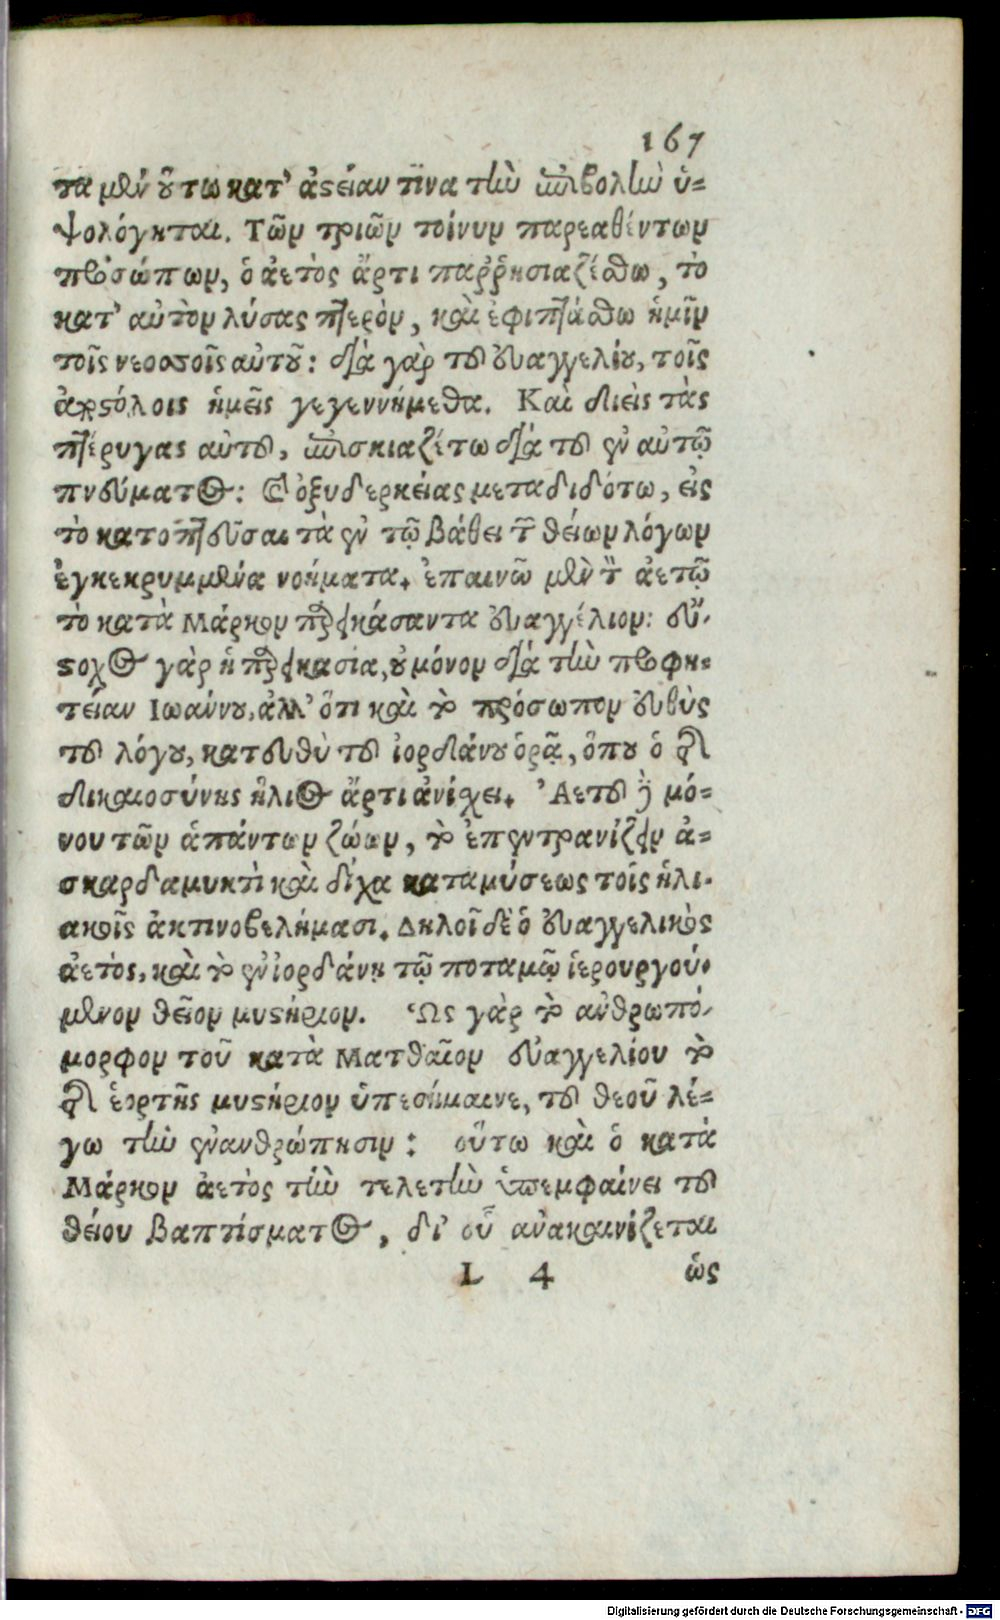 167
τα μὲν οὕτω κατ' ἀστείαν τινα τὴν ἐπιβολὴν ὑ-
ψολόγηται. Τῶν τριῶν τοίνυν παρεαθέντων
προσώπων, ὁ ἀετὸς ἄρτι παῤῥησιαζέσθω, τὸ
κατ' αὐτὸν λύσας πτερὸν, καὶ ἐφιπτάσθω ἡμῖν
τοῖς νεοσσοῖς αὐτοῦ: διὰ γὰρ τοῦ εὐαγγελίου, τοῖς
ἀποστόλοις ἡμεῖς γεγεννήμεθα. Καὶ διεὶς τὰς
πτέρυγας αὐτοῦ, ἐπισκιαζέτω διὰ τοῦ ἐν αὐτῷ
πνεύματος: καὶ ὀξυδερκείας μεταδιδότω, εἰς
τὸ κατοπτεῦσαι τὰ ἐν τῷ βάθει τῶν θείων λόγων
ἐγκεκρυμμένα νοήματα. ἐπαινῶ μὲν τὸν ἀετῷ
τὸ κατὰ Μάρκον προσεικάσαντα εὐαγγέλιον: εὔ-
στοχος γὰρ ἡ προσεικασία, οὐ μόνον διὰ τὴν προφη-
τείαν Ἰωάννου, ἀλλ' ὅτι καὶ τὸ πρόσωπον εὐθὺς
τοῦ λόγου, κατευθὺ τοῦ ἰορδάνου ὁρᾷ, ὅπου ὁ τῆς
δικαιοσύνης ἥλιος ἄρτι ἀνίσχει. Ἀετοῦ δὲ μό-
νου τῶν ἁπάντων ζώων, τὸ ἐπεντρανίζειν ἀ-
σκαρδαμυκτὶ καὶ δίχα καταμύσεως τοῖς ἡλι-
ακοῖς ἀκτινοβελήμασι. Δηλοῖ δὲ ὁ εὐαγγελικὸς
ἀετὸς, καὶ τὸ ἐν ἰορδάνῃ τῷ ποταμῷ ἱερουργού-
μενον θεῖον μυστήριον. Ὡς γὰρ τὸ ἀνθρωπό-
μορφον τοῦ κατὰ Ματθαῖον εὐαγγελίου τὸ
τῆς ἑορτῆς μυστήριον ὑπεσήμαινε, τοῦ θεοῦ λέ-
γω τὴν ἐνανθρώπησιν: οὕτω καὶ ὁ κατὰ
Μάρκον ἀετὸς τὴν τελετὴν ὑπεμφαίνει τοῦ
θείου βαπτίσματος, δι' οὗ ἀνακαινίζεται
L 4 ὡς
Digitalisierung gefördert durch die Deutsche Forschungsgemeinschaft - DFG